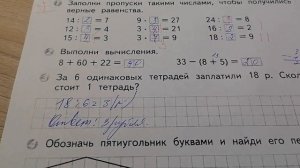 Заполни пропуски такими числами, чтобы получились
верные равенства.
14 : 2 = 7 9 · 3 = 27 24 : 3 = 8
12 : 3 = 4 7 · 3 = 21 16 : 8 = 2
15 : = 3 · 3 = 9 18 : = 2
Выполни вычисления.
8 + 60 + 22 = 90 33 − (8 + 5)
За 6 одинаковых тетрадей заплатили 18 р.
стоит 1 тетрадь?
18:6=3(р)
Ответ: 3 рубля.
Обозначь пятиугольник буквами и найди его пе